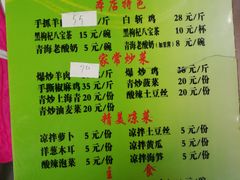 本店特色
手抓羊肉 55 /斤 白斩鸡 28元/斤
黑枸杞八宝茶 15元/碗 黑枸杞八宝茶 10元/杯
青海老酸奶 5元/碗 青海老酸奶(加蜜) 8元/碗
家常炒菜
爆炒羊肉 70 爆炒鸡
手撕椒麻鸡 35元/斤 青炒菠菜 20元/份
青炒上海青 20元/份 酸辣土豆丝 20元/份
青炒油麦菜 20元/份
精美凉菜
凉拌萝卜 5元/份 凉拌土豆丝 5元/份
洋葱木耳 5元/份 凉拌黄瓜 5元/份
酸辣泡菜 5元/份 凉拌海笋 5元/份
主 食